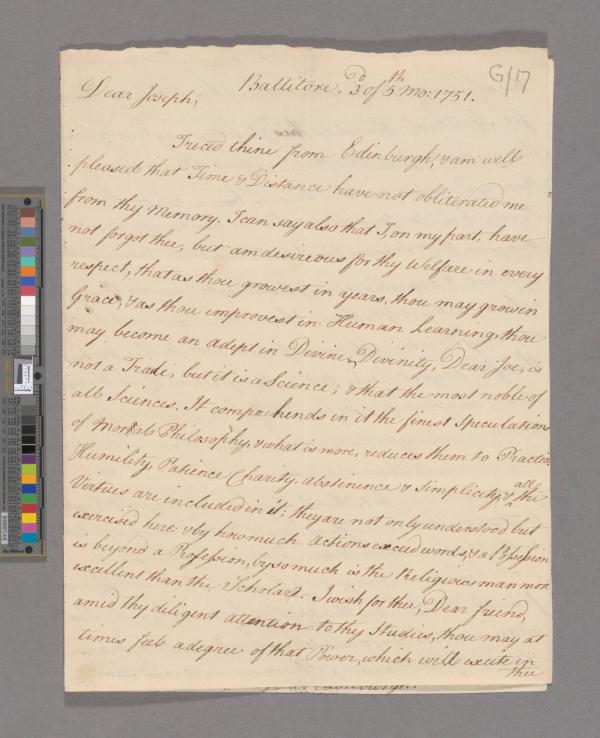 G/17
Ballitore, 3d of 5th Mo: 1751.
Dear Joseph,
I reced thine from Edinburgh, & am well
pleased that Time & Distance have not obliterated me
from thy Memory. I can say also that I, on my part, have
not forgot thee, but am desireous for thy Welfare in every
respect, that as thou growest in years, thou may grow in
Grace, & as thou improvest in Human Learning, thou
may become an adept in Divine. Divinity, Dear Joe, is
not a Trade, but it is a Science; & that the most noble of
all Sciences. It comprehends in it the finest Speculations
of Moral Philosophy, & what is more, reduces them to Practice
Humility, Patience Charity, abstinence & simplicity, & all the
Virtues are included in it: they are not only understood but
exercised here: & by how much Actions exceed words, &
is beyond a Profession, by so much is the Religious man more
excellent than the Scholar. I wish for thee, Dear friend,
amid thy diligent attention to thy Studies, thou may at
times feel a degree of that Power, which will excite in
thee
Edinburgh.